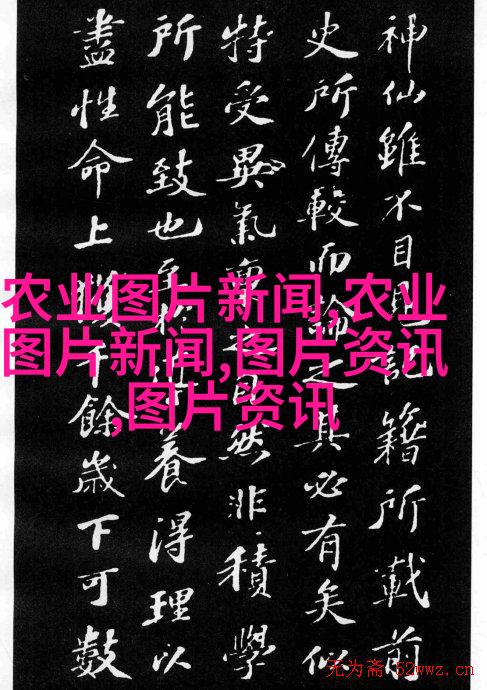 神仙雖不目見記籍所載前
史所傳較而論之其必有矣似
特受異氣稟之自然非積學
所能致也至於導養得理以
盡性命上獲千餘歲下可數
农业图片新闻,农业
图片新闻,图片资讯
,图片资讯
无为斋·52wwz.cn